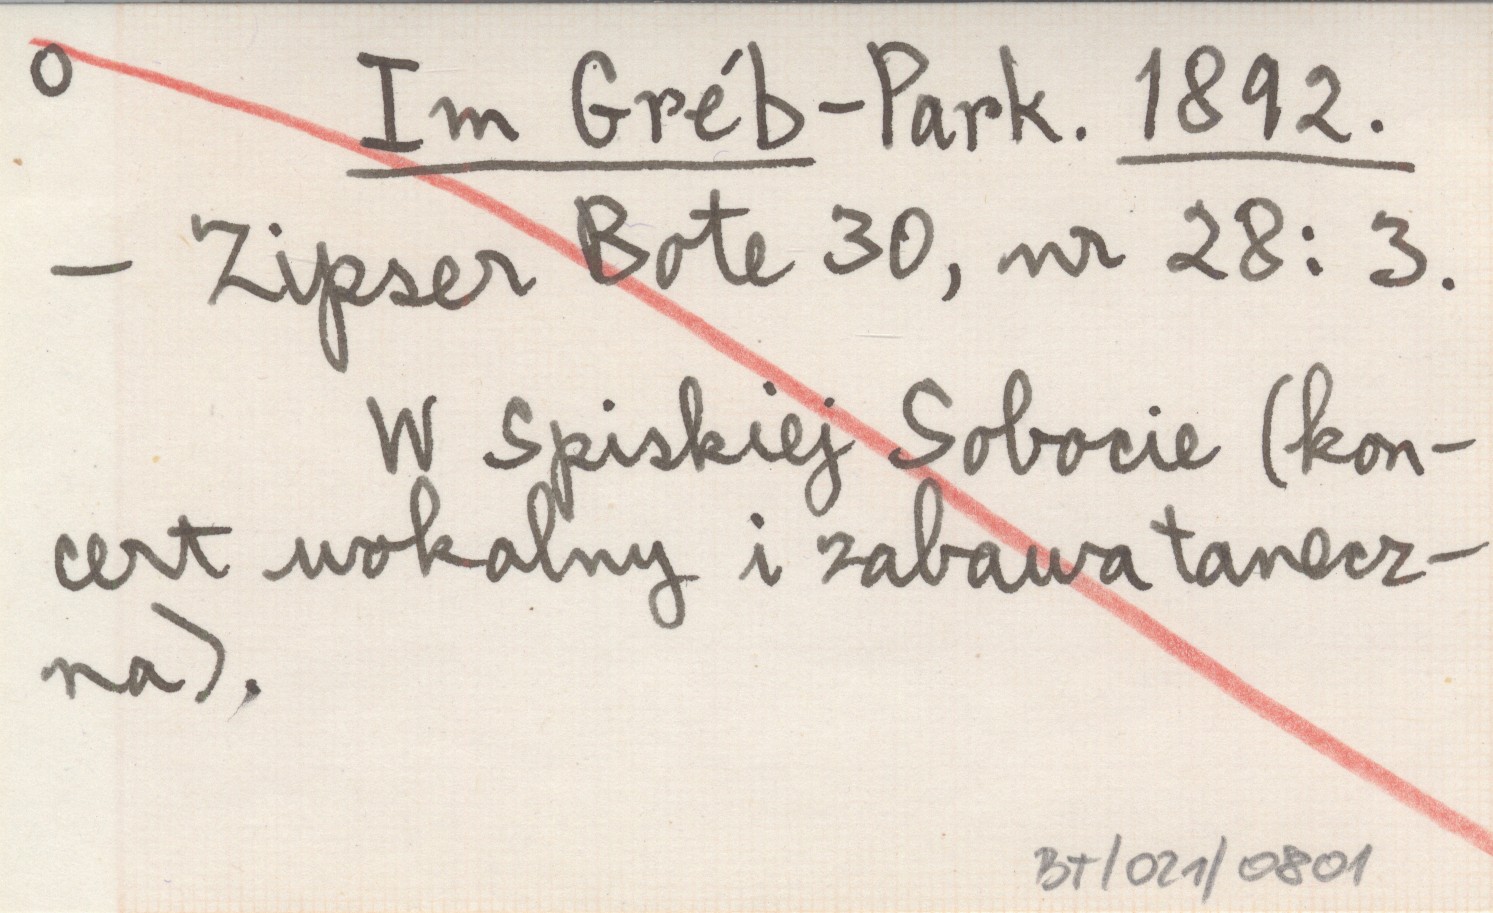 o Im Gréb-Park. 1892.
— Zipser Bote 30, nr 28: 3.
W Spiskiej Sobocie (kon-
cert wokalny i zabawa tanecz-
na).
BT/021/0801